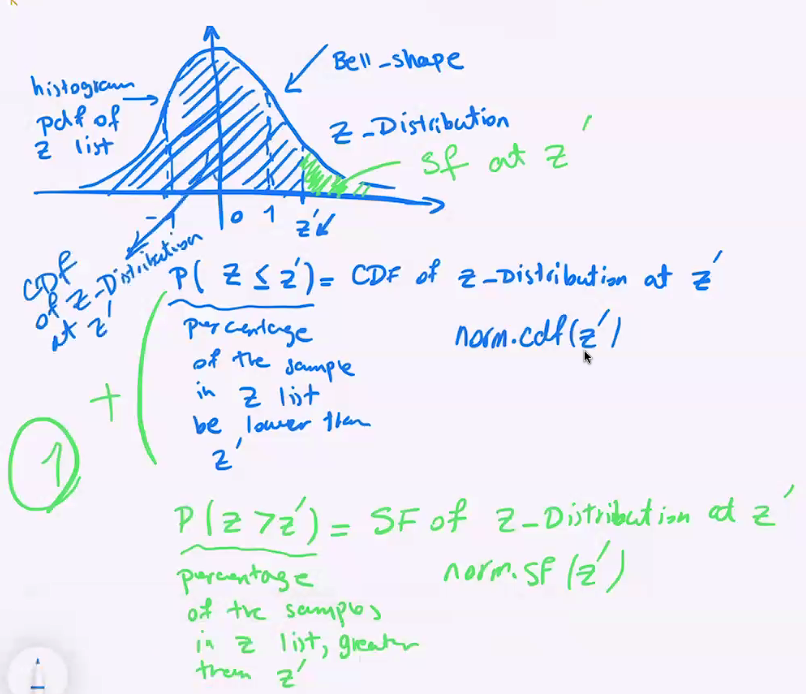 Bell-shape
histogram
pdf of
z list
Z-Distribution
Sf at z'
-1 0 1 z'
CDF
of z-Distribution
at z'
P(Z ≤ z') = CDF of z-Distribution at z'
norm.cdf(z')
percentage
of the sample
in z list
be lower than
z'
+
1
P(z > z') = SF of z-Distribution at z'
norm.sf(z')
percentage
of the samples
in z list, greater
than z'